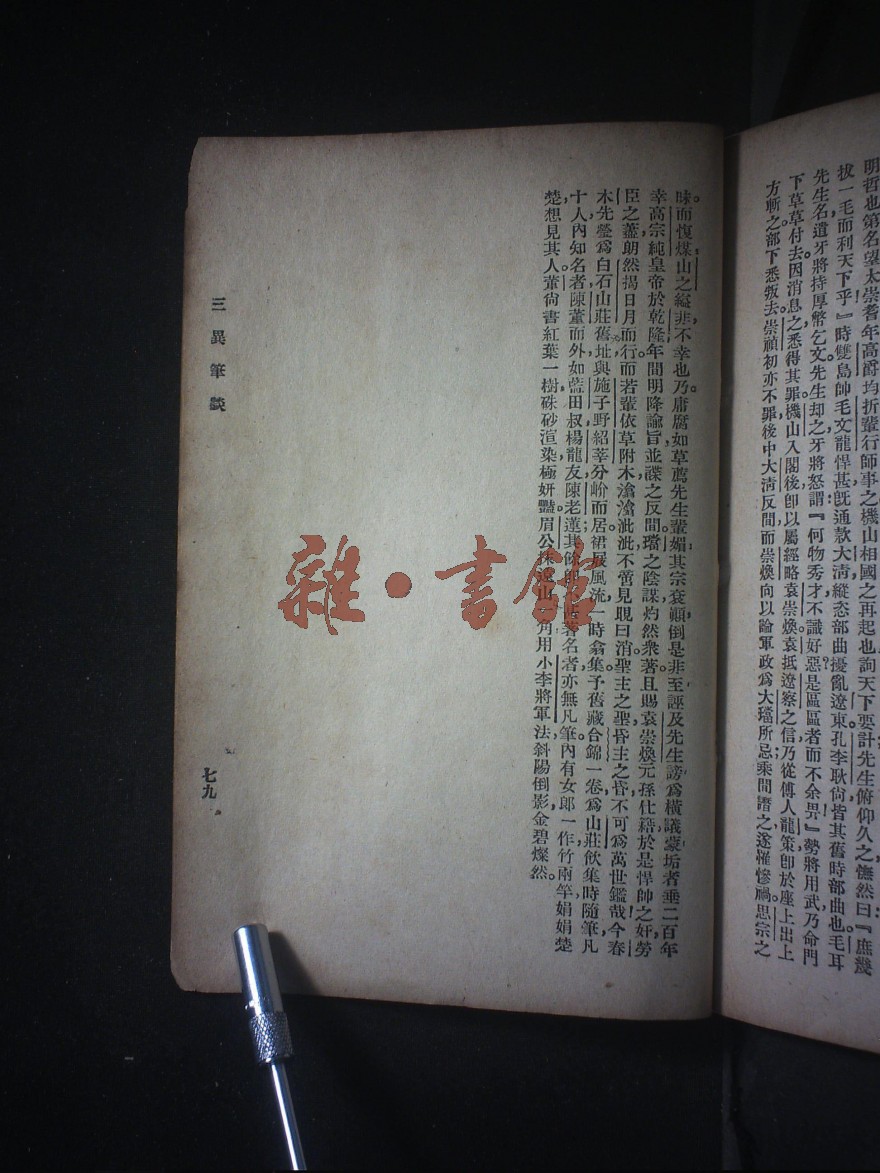 明哲也第名望太崇耆年高爵均折輩行師事之機山相國之再起也詢天下要計先生俯仰久之憮然曰『庶幾
拔一毛而利天下乎』時雙島帥毛文龍悍甚旣通款大淸縱恣部曲擾亂遼東孔李耿尙皆其舊時部曲也毛耳
先生名遣牙將持厚幣乞文先生却之牙將怒謂『何物秀才不識好惡是區區者而不余畀』勢將用武乃命門
下草草付去因消息之悉得其罪機山入閣後卽以屬經略袁崇煥袁抵遼察之信乃從傅人龍策卽於座上出上
方斬之部下悉叛去崇禎初亦不罪後中大淸反間而崇煥向以論軍政爲大璫所忌乘間譖之遂罹慘禍思宗之
昧而愎煤山之縊非不幸也乃庸腐如草薦先生輩媚其宗袞顚倒是非至誣及先生謗爲橫議蒙垢者垂二百年
幸高宗純皇帝於乾隆年間明降諭旨並諜之反間璫之陰謀灼然衆著且賜袁崇煥元孫仕籍於是悍帥之奸勞
臣之藎朗然揭日月而行而若輩依草附木滄滄泚泚不啻見晛曰消聖主之聖昏主之昏不可爲萬世鑑哉今春
木先瑩爲白石山莊舊址與施子野紹莘分岭而居裙屐風流一時翕集予舊藏合錦一卷爲山莊飮集時隨筆凡
十人內知名者陳董而外如藍田叔楊龍友陳老蓮其餘卽著名者亦無凡筆內有女郎一作竹兩竿娟娟楚
楚想見其人董尙書紅葉一樹硃砂渲染極妍豔眉公採遠山角用小李將軍法斜陽倒影金碧燦然
三異筆談
七九
雜·書館